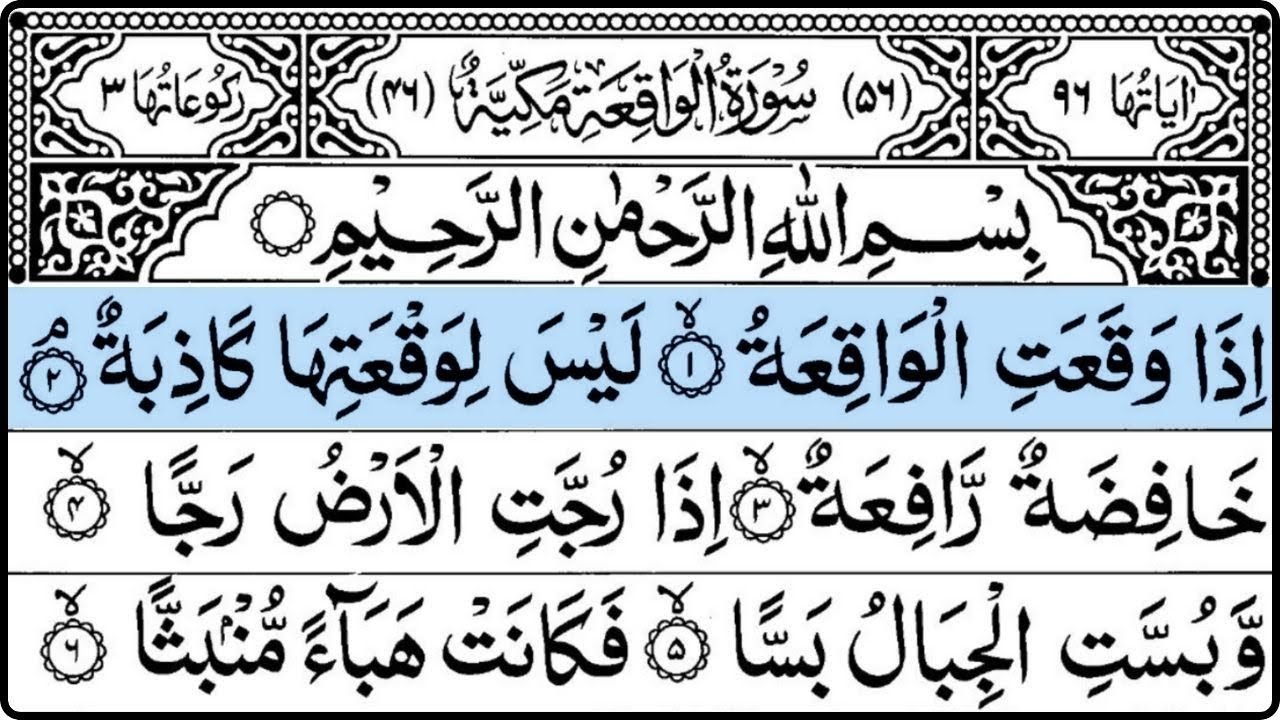 اٰيَاتُهَا ٩٦ (٥٦) سُوْرَةُ الْوَاقِعَةِ مَكِّيَّةٌ (٤٦) رُكُوْعَاتُهَا ٣
بِسْمِ اللّٰهِ الرَّحْمٰنِ الرَّحِيْمِ
اِذَا وَقَعَتِ الْوَاقِعَةُ ۙ﴿١﴾ لَيْسَ لِوَقْعَتِهَا كَاذِبَةٌ ۘ﴿٢﴾
خَافِضَةٌ رَّافِعَةٌ ۙ﴿٣﴾ اِذَا رُجَّتِ الْاَرْضُ رَجًّا ۙ﴿٤﴾
وَّبُسَّتِ الْجِبَالُ بَسًّا ۙ﴿٥﴾ فَكَانَتْ هَبَآءً مُّنْۢبَثًّا ۙ﴿٦﴾